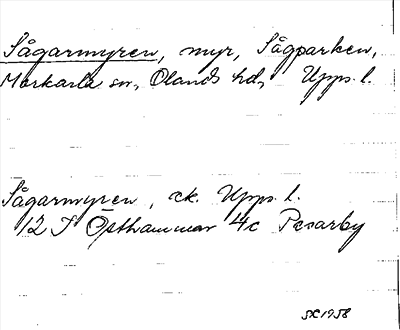 Sågarmyren, myr, Sågparken,
Morkarla sn, Olands hd, Upps. l.
Sågarmyren, ek. Upps. l.
12 I Östhammar 4c Pesarby
SK 1958